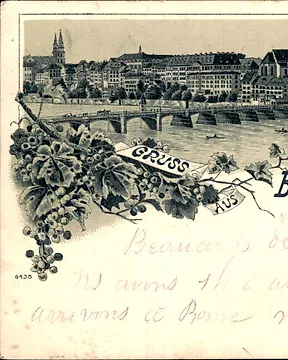 GRUSS
AUS
B
6436
Beaucoup de
Ns avons
arrivons à Rome